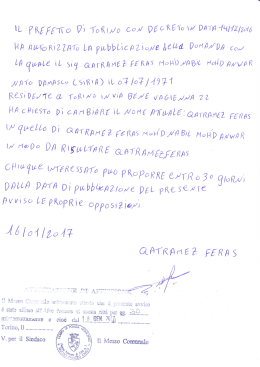 IL PREFETTO DI TORINO CON DECRETO IN DATA 14/12/2016
HA AUTORIZZATO LA PUBBLICAZIONE DELLA DOMANDA CON
LA QUALE IL SIG QATRAMEZ FERAS MOHD NABIL MOHD ANWAR
NATO DAMASCO (SIRIA) IL 07/07/1971
RESIDENTE A TORINO IN VIA BENE VAGIENNA 22
HA CHIESTO DI CAMBIARE IL NOME ATTUALE: QATRAMEZ FERAS
IN QUELLO DI QATRAMEZ FERAS MOHD NABIL MOHD ANWAR
IN MODO DA RISULTARE QATRAMEZ FERAS
CHIUQUE INTERESSATO PUO PROPORRE ENTRO 30 GIORNI
DALLA DATA DI PUBBLICAZIONE DEL PRESENTE
AVVISO LE PROPRIE OPPOSIZIONI
16/01/2017
QATRAMEZ FERAS
Il Messo Comunale
Torino, li
V. per il Sindaco
Il Messo Comunale